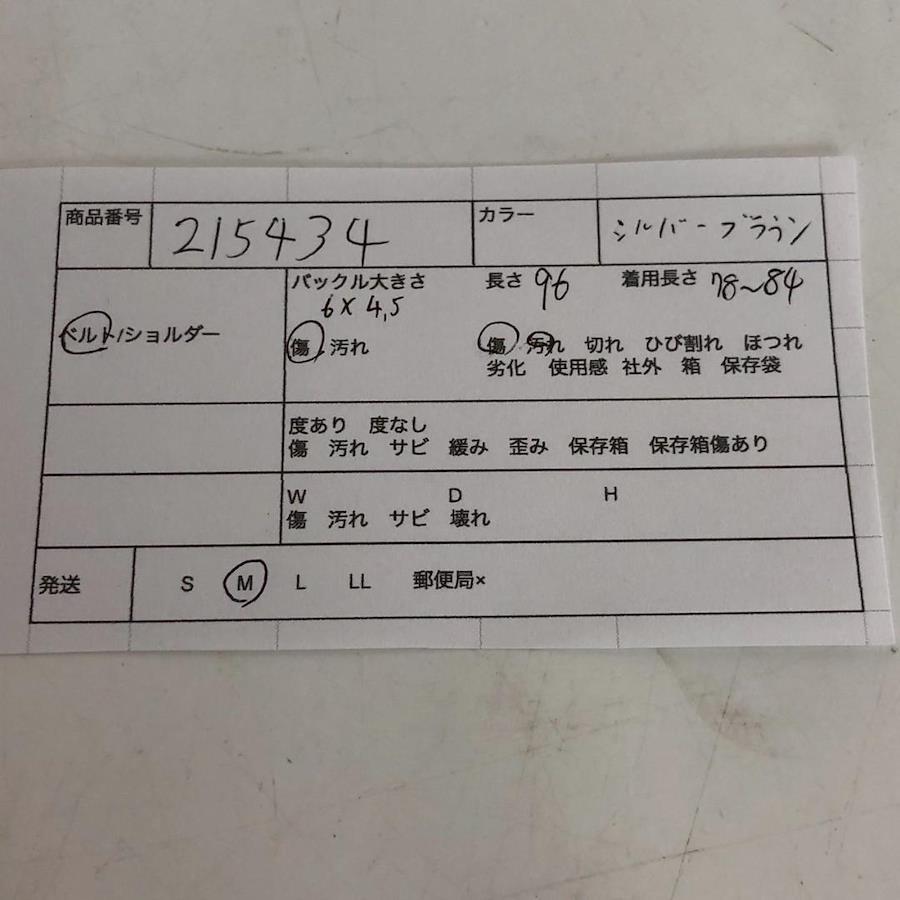 商品番号 215434 カラー シルバーブラウン
バックル大きさ 長さ 96 着用長さ 78～84
6×4,5
ベルト/ショルダー
傷 汚れ 傷 汚れ 切れ ひび割れ ほつれ
劣化 使用感 社外 箱 保存袋
度あり 度なし
傷 汚れ サビ 緩み 歪み 保存箱 保存箱傷あり
W D H
傷 汚れ サビ 壊れ
発送 S M L LL 郵便局×